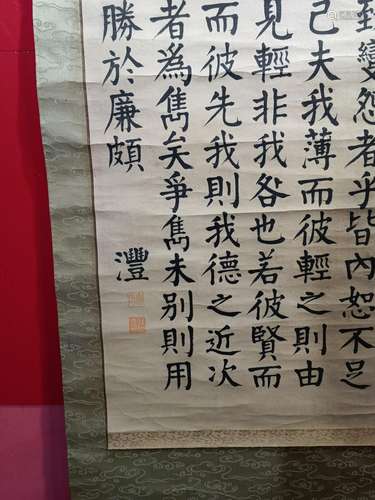 變怨者乎皆內恕不足
己夫我薄而彼輕之則由
見輕非我咎也若彼賢而
而彼先我則我德之近次
者為儁矣爭儁未別則用
勝於廉頗
灃